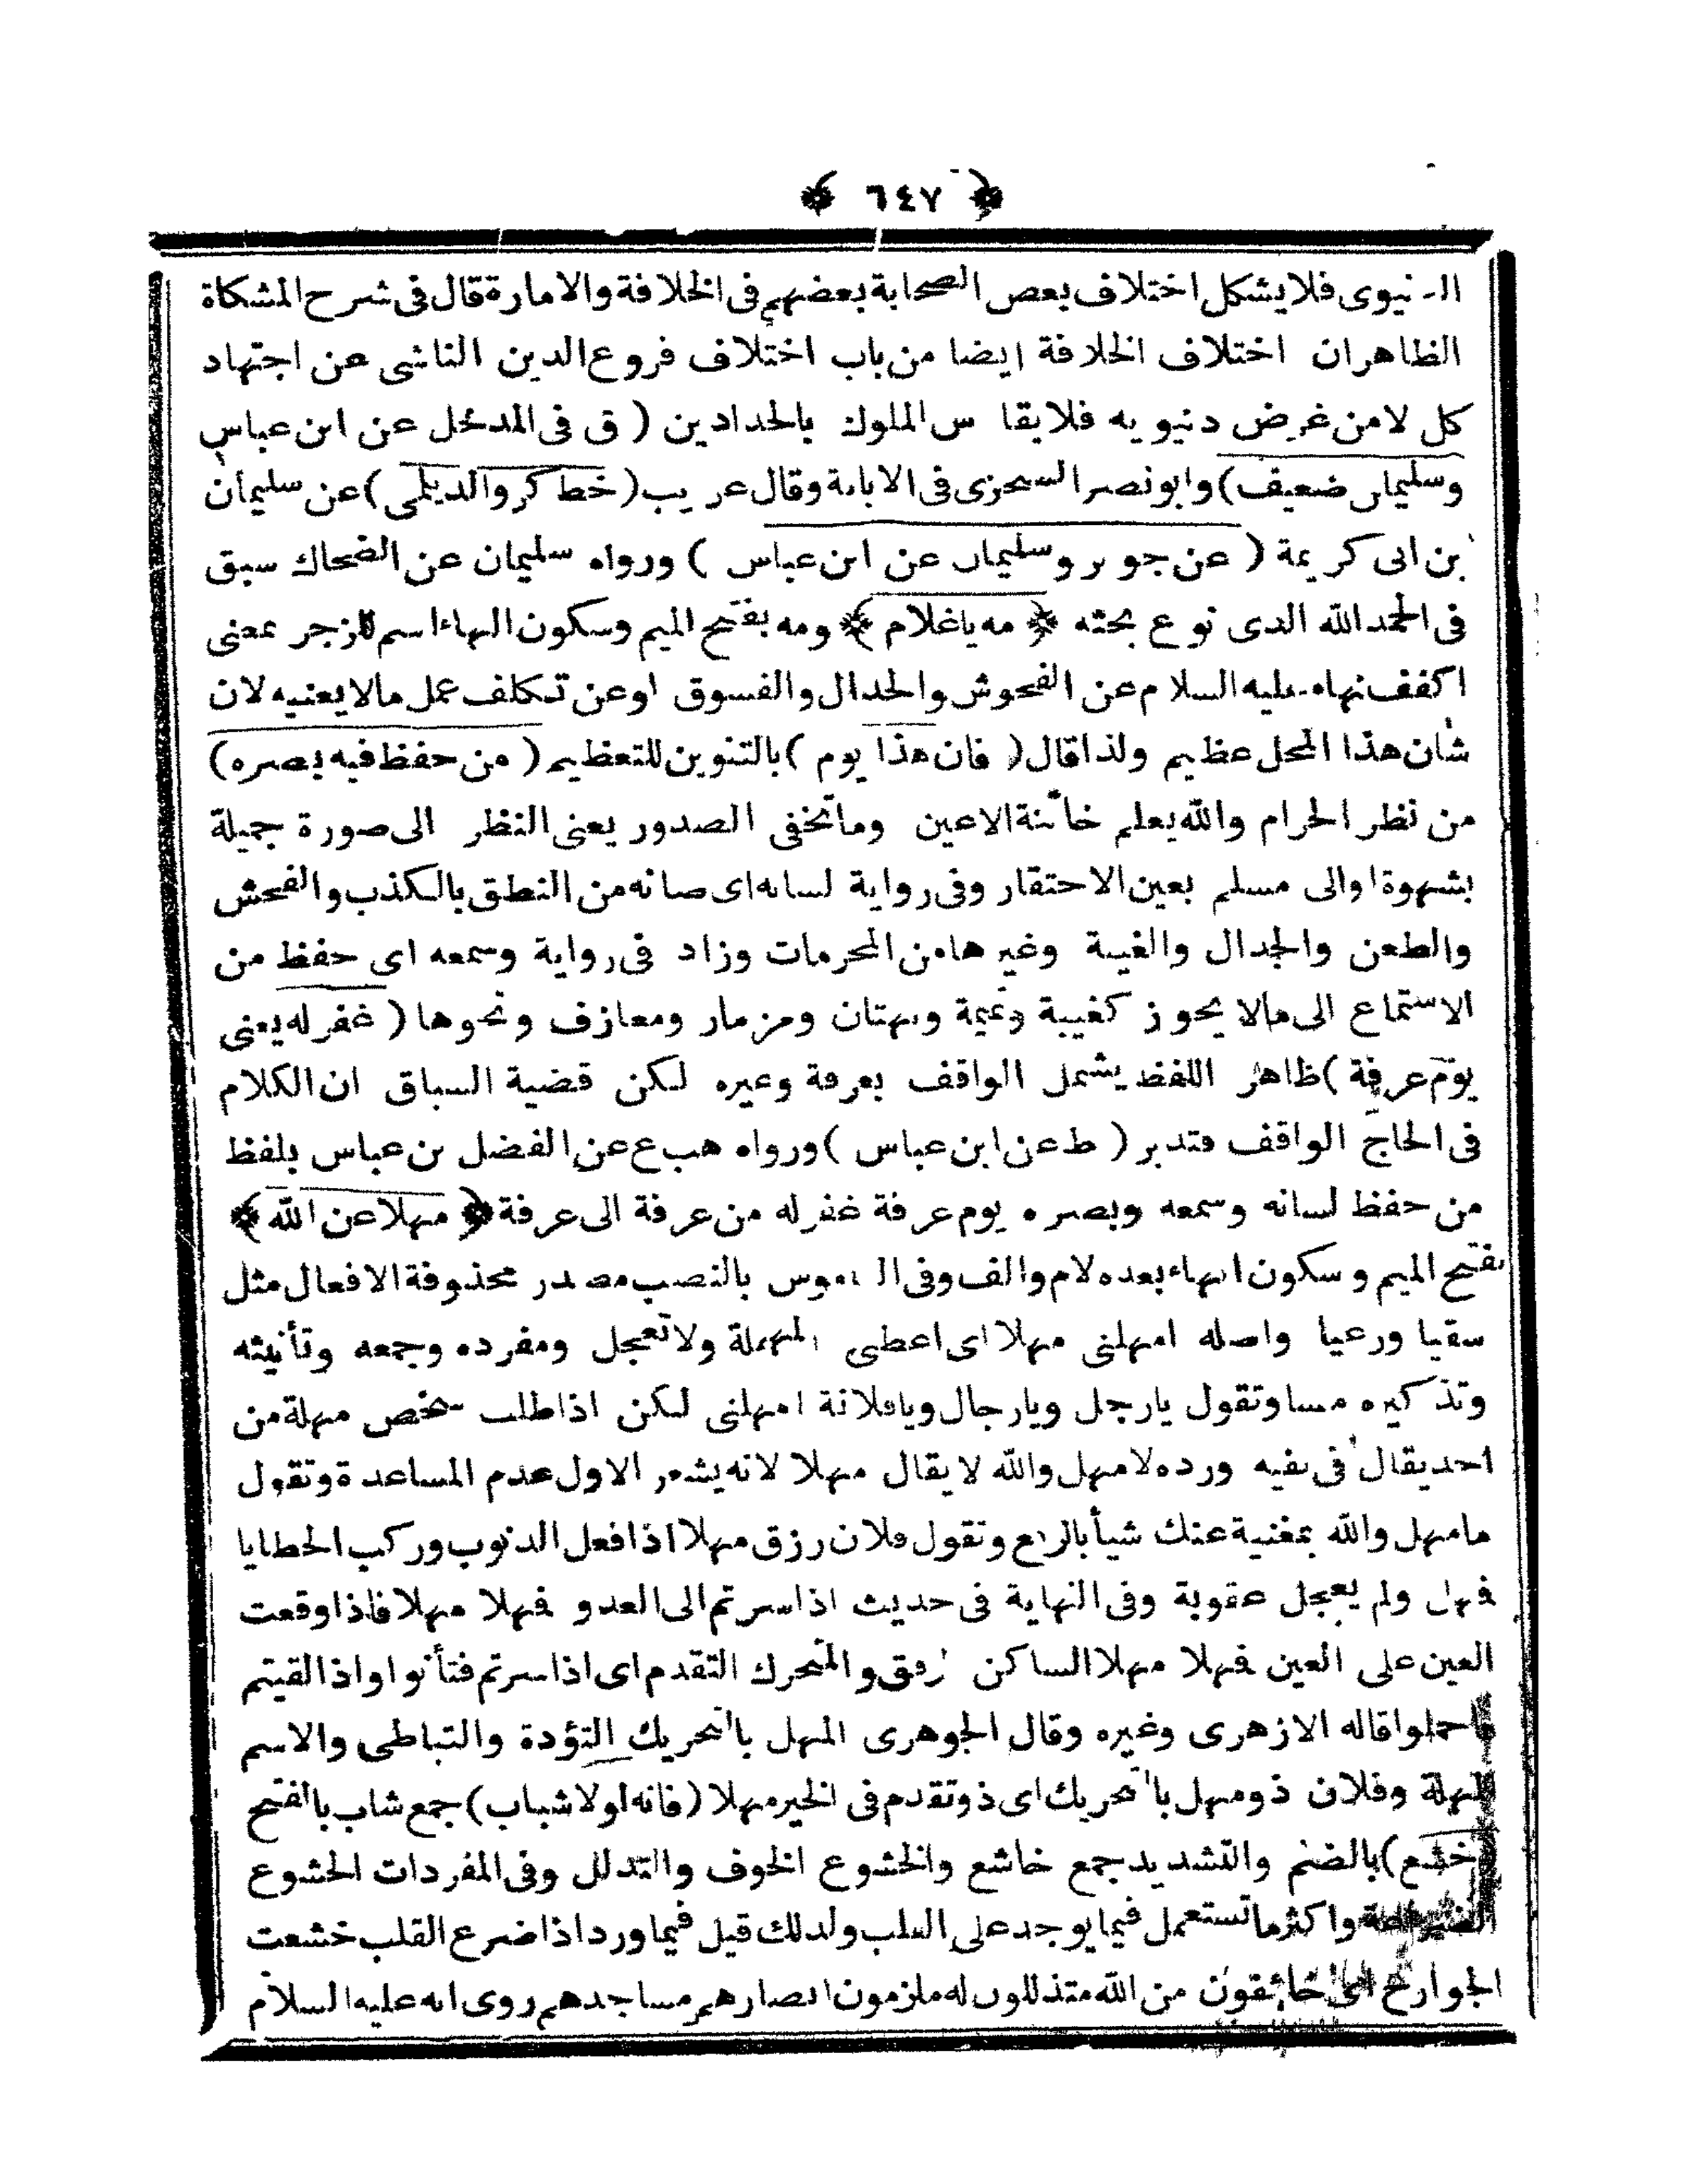 ﴿ ٦٤٧ ﴾
الدنيوى فلا يشكل اختلاف بعض الصحابة بعضهم فى الخلافة والامارة قال فى شرح المشكاة
الظاهر ان اختلاف الخلافة ايضا من باب اختلاف فروع الدين الناشى عن اجتهاد
كل لا من غرض دنيويه فلا يقاس الملوك بالحدادين ( ق فى المدخل عن ابن عباس
وسليمان ضعيف ) وابو نصر السجزى فى الابانة وقال غريب ( خط كر والديلمى ) عن سليمان
بن ابى كريمة ( عن جويبر وسليمان عن ابن عباس ) ورواه سليمان عن الضحاك سبق
فى الحمد الله الذى نوع بحثه ﴿ مه يا غلام ﴾ ومه بفتح الميم وسكون الهاء اسم للزجر بمعنى
اكفف نهاه عليه السلام عن الفحوش والجدال والفسوق او عن تكلف عمل مالا يعنيه لان
شأن هذا المحل عظيم ولذا قال ( فان هذا يوم ) بالتنوين للتعظيم ( من حفظ فيه بصره )
من نظر الحرام والله يعلم خائنة الاعين وما تخفى الصدور يعنى النظر الى صورة جميلة
بشهوة او الى مسلم بعين الاحتقار وفى رواية لسانه اى صانه من النطق بالكذب والفحش
والطعن والجدال والغيبة وغيرها من المحرمات وزاد فى رواية وسمعه اى حفظ من
الاستماع الى مالا يجوز كغيبة ونميمة وبهتان ومزمار ومعازف ونحوها ( غفر له يعنى
يوم عرفة ) ظاهر اللفظ يشمل الواقف بعرفة وغيره لكن قضية السباق ان الكلام
فى الحاج الواقف فتدبر ( ط عن ابن عباس ) ورواه هب ع عن الفضل بن عباس بلفظ
من حفظ لسانه وسمعه وبصره يوم عرفة غفر له من عرفة الى عرفة ﴿ مهلا عن الله ﴾
بفتح الميم وسكون الهاء بعده لام والف وفى بالنصب مصدر محذوفة الافعال مثل
سقيا ورعيا واصله امهلنى مهلا اى اعطى المهملة ولا تعجل ومفرده وجمعه وتأنيثه
وتذكيره مساو تقول يا رجل ويا رجال ويا فلانة امهلنى لكن اذا طلب شخص مهلة من
احد يقال فى نفيه ورده لا مهل والله لا يقال مهلا لانه يشعر الاول عدم المساعدة وتقول
ما مهل والله بمغنية عنك شيأ بالرفع وتقول فلان رزق مهلا اذا فعل الذنوب وركب الخطايا
فمهل ولم يعجل عقوبة وفى النهاية فى حديث اذا سرتم الى العدو فمهلا مهلا فاذا وقعت
العين على العين فمهلا مهلا الساكن رفق والمتحرك التقدم اى اذا سرتم فتأنوا واذا لقيتم
فاحملوا قاله الازهرى وغيره وقال الجوهرى المهل بالتحريك التؤدة والتباطى والاسم
المهلة وفلان ذو مهل بالتحريك اى ذو تقدم فى الخير مهلا ( فانه لولا شباب ) جمع شاب بالفتح
خشع ) بالضم والتشديد جمع خاشع والخشوع الخوف والتدلل وفى المفردات الخشوع
واكثر ما تستعمل فيما يوجد على القلب ولذلك قيل فيما ورد اذا ضرع القلب خشعت
الجوارح اى خائفون من الله متذللون له ملزمون ابصارهم مساجدهم روى انه عليه السلام